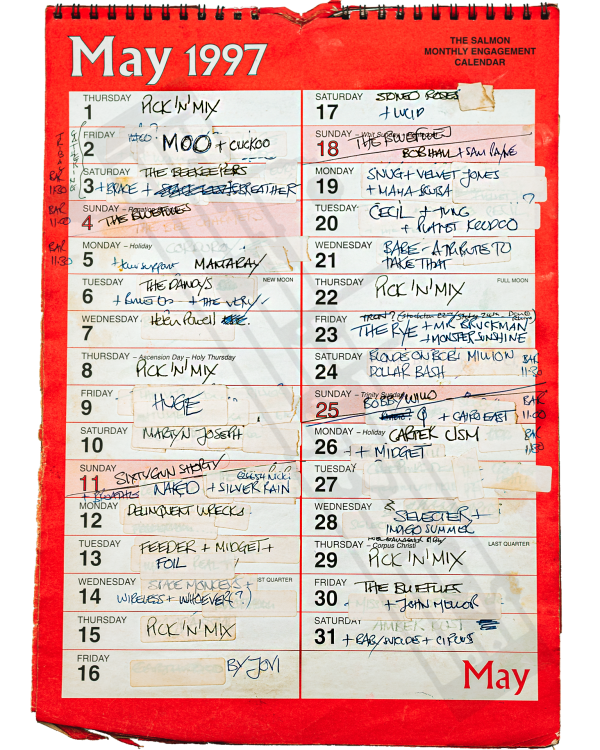 May 1997
THE SALMON
MONTHLY ENGAGEMENT
CALENDAR
THURSDAY
1
PICK 'N' MIX
FRIDAY
2
MOO + CUCKOO
SATURDAY
3
THE BEEKEEPERS
+ BRACE + BREATHER
BAR
11:30
SUNDAY
4
THE BLUEFLIES
BAR
11:00
MONDAY – Holiday
5
+ tour support MANTARAY
BAR
11:30
TUESDAY
6
NEW MOON
THE DANDYS
+ THE VERY
WEDNESDAY
7
Helen Powell
THURSDAY – Ascension Day – Holy Thursday
8
PICK 'N' MIX
FRIDAY
9
HUGE
SATURDAY
10
MARTYN JOSEPH
SUNDAY
11
SIXTYGUN SHORTY
NAKED + SILVER RAIN
MONDAY
12
DELINQUENT WRECKS
TUESDAY
13
FEEDER + MIDGET +
FOIL
WEDNESDAY
14
1ST QUARTER
SPACE MONKEYS +
WIRELESS + WHOEVER(?)
THURSDAY
15
PICK 'N' MIX
FRIDAY
16
BY JOVI
SATURDAY
17
STONED ROSES
+ LUCID
SUNDAY – Whit Sunday
18
THE BLUEFLIES
BOB HALL + SAM PAYNE
MONDAY
19
SNUG + VELVET JONES
+ MAHA SKUBA
TUESDAY
20
CECIL + TUNG
+ PLANET KOODOO
?
WEDNESDAY
21
BARE - A TRIBUTE TO
TAKE THAT
THURSDAY
22
FULL MOON
PICK 'N' MIX
FRIDAY
23
THE RYE + MR BRUCKMAN
+ MONSTER SUNSHINE
SATURDAY
24
BLONDE ON BOB? MILLION
DOLLAR BASH
BAR
11:30
SUNDAY – Trinity Sunday
25
BOBBY WILLO
Q + CAIRO EAST
BAR
11:00
MONDAY – Holiday
26
CARTER USM
+ + MIDGET
BAR
11:30
TUESDAY
27
WEDNESDAY
28
SELECTER +
INDIGO SUMMER
THURSDAY – Corpus Christi
29
LAST QUARTER
PICK 'N' MIX
FRIDAY
30
THE BLUEFLIES
+ JOHN MOLLOR
SATURDAY
31
AMBER DUST
+ BABY INCLOSE + CIRCUS
May